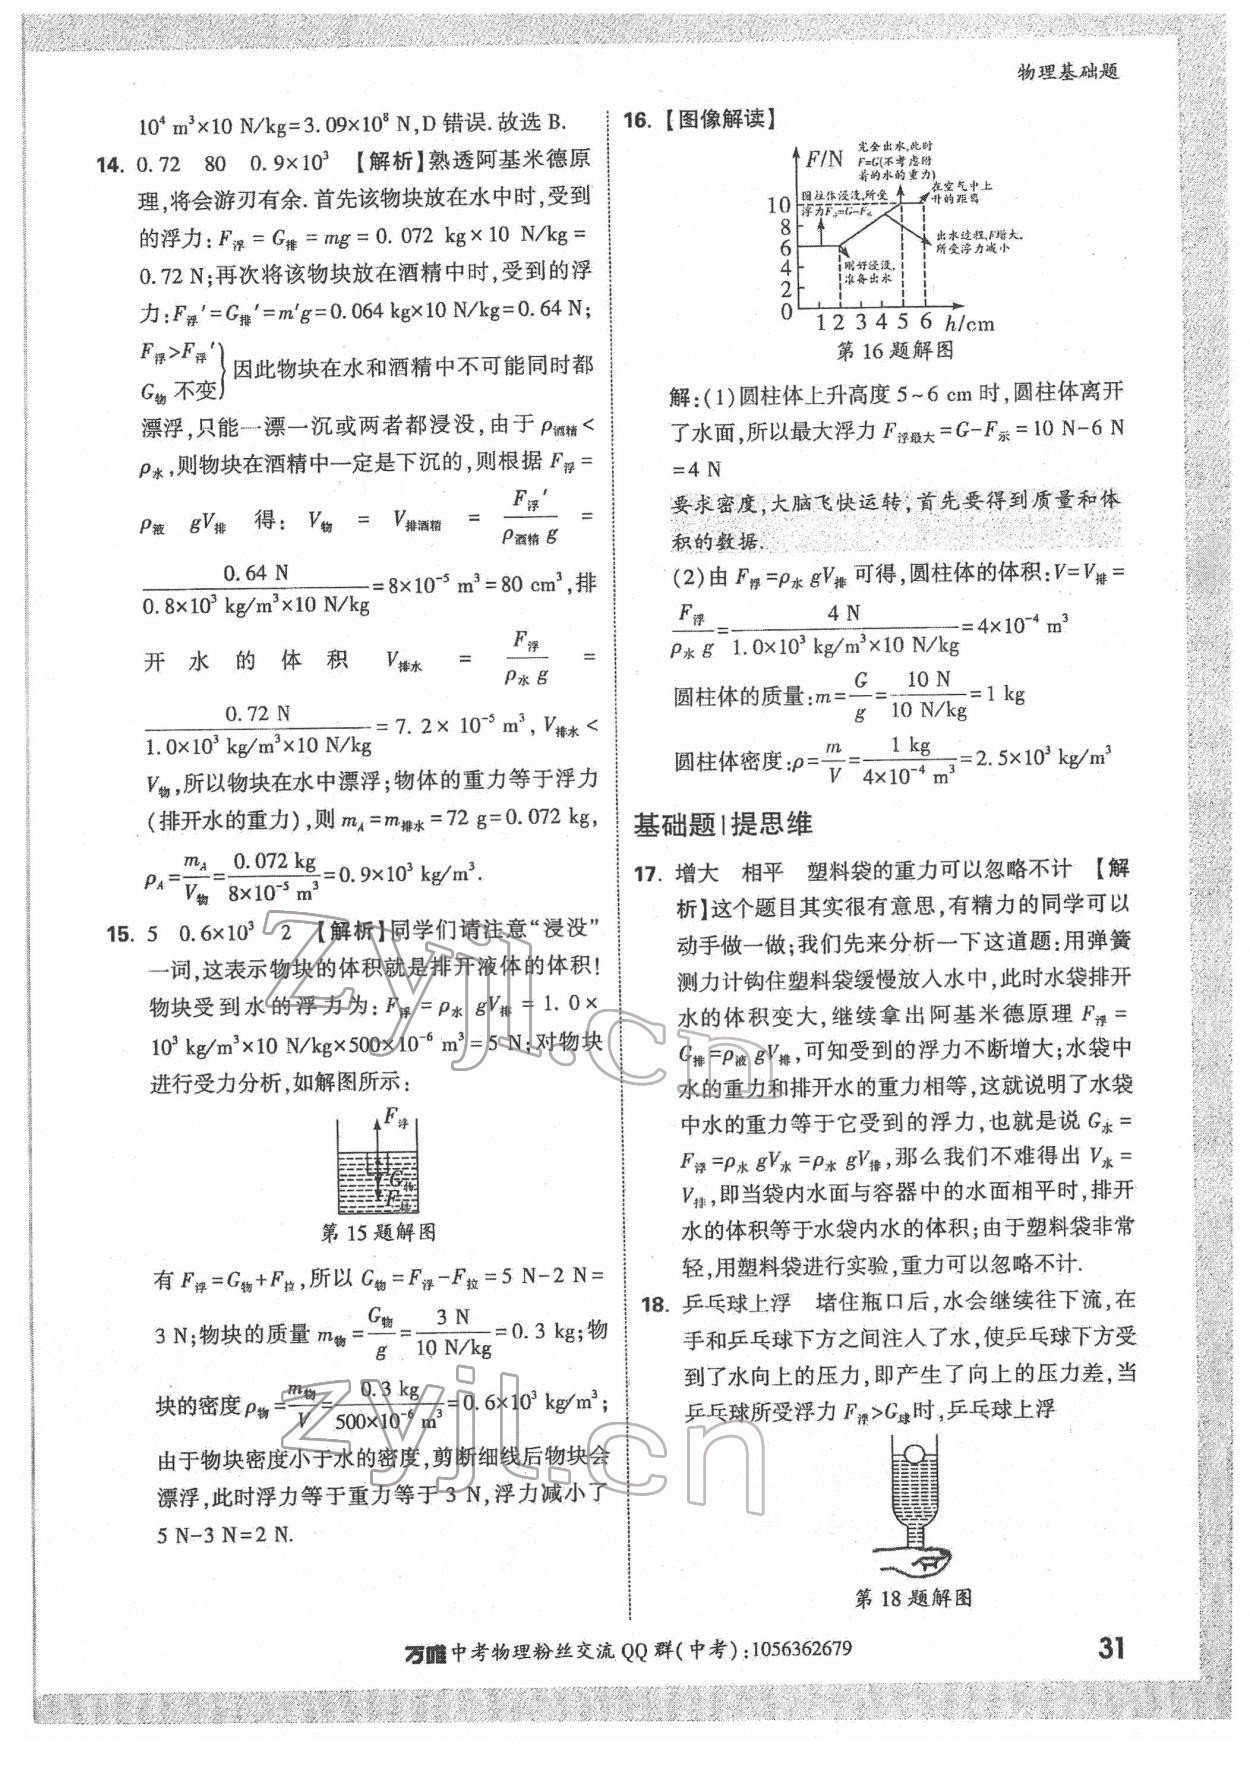 物理基础题
10⁴ m³×10 N/kg=3.09×10⁸ N,D 错误.故选 B.
14. 0.72 80 0.9×10³ 【解析】熟透阿基米德原
理,将会游刃有余.首先该物块放在水中时,受到
的浮力:F浮 = G排 = mg = 0.072 kg×10 N/kg =
0.72 N;再次将该物块放在酒精中时,受到的浮
力:F浮′=G排′=m′g=0.064 kg×10 N/kg=0.64 N;
F浮>F浮′
G物 不变
}因此物块在水和酒精中不可能同时都
漂浮,只能一漂一沉或两者都浸没,由于 ρ酒精<
ρ水,则物块在酒精中一定是下沉的,则根据 F浮=
ρ液 gV排 得: V物 = V排酒精 = F浮′/ρ酒精 g =
0.64 N/0.8×10³ kg/m³×10 N/kg=8×10⁻⁵ m³=80 cm³,排
开水的体积 V排水 = F浮/ρ水 g =
0.72 N/1.0×10³ kg/m³×10 N/kg=7.2×10⁻⁵ m³,V排水<
V物,所以物块在水中漂浮;物体的重力等于浮力
(排开水的重力),则 mA=m排水=72 g=0.072 kg,
ρA=mA/V物=0.072 kg/8×10⁻⁵ m³=0.9×10³ kg/m³.
15. 5 0.6×10³ 2 【解析】同学们请注意“浸没”
一词,这表示物块的体积就是排开液体的体积!
物块受到水的浮力为: F浮 = ρ水 gV排 = 1.0×
10³ kg/m³×10 N/kg×500×10⁻⁶ m³=5 N;对物块
进行受力分析,如解图所示:
F浮
G物
F拉
第 15 题解图
有 F浮=G物+F拉,所以 G物=F浮-F拉=5 N-2 N=
3 N;物块的质量 m物=G物/g=3 N/10 N/kg=0.3 kg;物
块的密度 ρ物=m物/V=0.3 kg/500×10⁻⁶ m³=0.6×10³ kg/m³;
由于物块密度小于水的密度,剪断细线后物块会
漂浮,此时浮力等于重力等于 3 N,浮力减小了
5 N-3 N=2 N.
16.【图像解读】
F/N
完全出水,此时
F=G(不考虑附
着的水的重力)
在空气中上
升的距离
圆柱体浸没,所受
浮力F浮=G-F示
出水过程,F增大,
所受浮力减小
刚好浸没,
准备出水
10
8
6
4
2
0
1 2 3 4 5 6 h/cm
第 16 题解图
解:(1)圆柱体上升高度 5~6 cm 时,圆柱体离开
了水面,所以最大浮力 F浮最大=G-F示=10 N-6 N
=4 N
要求密度,大脑飞快运转,首先要得到质量和体
积的数据.
(2)由 F浮=ρ水 gV排 可得,圆柱体的体积:V=V排=
F浮/ρ水 g=4 N/1.0×10³ kg/m³×10 N/kg=4×10⁻⁴ m³
圆柱体的质量:m=G/g=10 N/10 N/kg=1 kg
圆柱体密度:ρ=m/V=1 kg/4×10⁻⁴ m³=2.5×10³ kg/m³
基础题|提思维
17. 增大 相平 塑料袋的重力可以忽略不计 【解
析】这个题目其实很有意思,有精力的同学可以
动手做一做;我们先来分析一下这道题:用弹簧
测力计钩住塑料袋缓慢放入水中,此时水袋排开
水的体积变大,继续拿出阿基米德原理 F浮=
G排=ρ液 gV排,可知受到的浮力不断增大;水袋中
水的重力和排开水的重力相等,这就说明了水袋
中水的重力等于它受到的浮力,也就是说 G水=
F浮=ρ水 gV水=ρ水 gV排,那么我们不难得出 V水=
V排,即当袋内水面与容器中的水面相平时,排开
水的体积等于水袋内水的体积;由于塑料袋非常
轻,用塑料袋进行实验,重力可以忽略不计.
18. 乒乓球上浮 堵住瓶口后,水会继续往下流,在
手和乒乓球下方之间注入了水,使乒乓球下方受
到了水向上的压力,即产生了向上的压力差,当
乒乓球所受浮力 F浮>G球时,乒乓球上浮
第 18 题解图
zyjl.cn
zyjl.cn
万唯中考物理粉丝交流 QQ 群(中考):1056362679
31